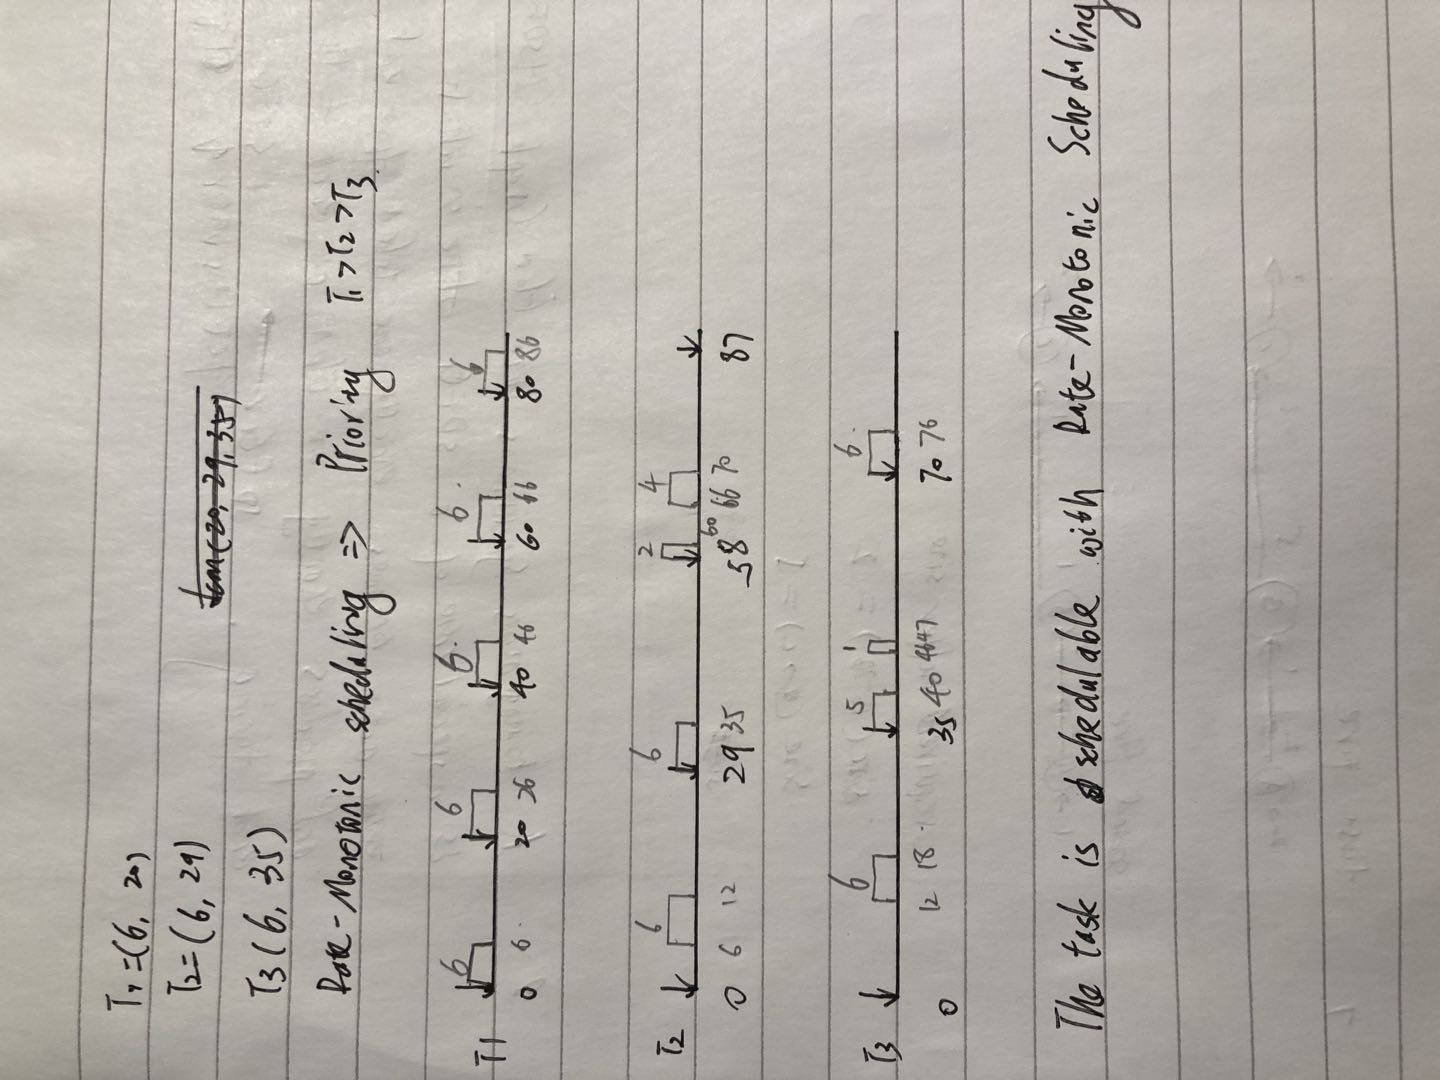 T1=(6, 20)
T2=(6, 29)
lcm(20, 29, 35)
T3(6, 35)
Rate-Monotonic scheduling => Priority T1>T2>T3.
6 6 6. 6. 6
T1
0 6. 20 26 40 46 60 66 80 86
6 6 2 4
T2
0 6 12 29 35 58 60 66 70 87
6 5 1 6.
T3
0 12 18 35 40 46 47 70 76
The task is schedulable with Rate-Monotonic Scheduling